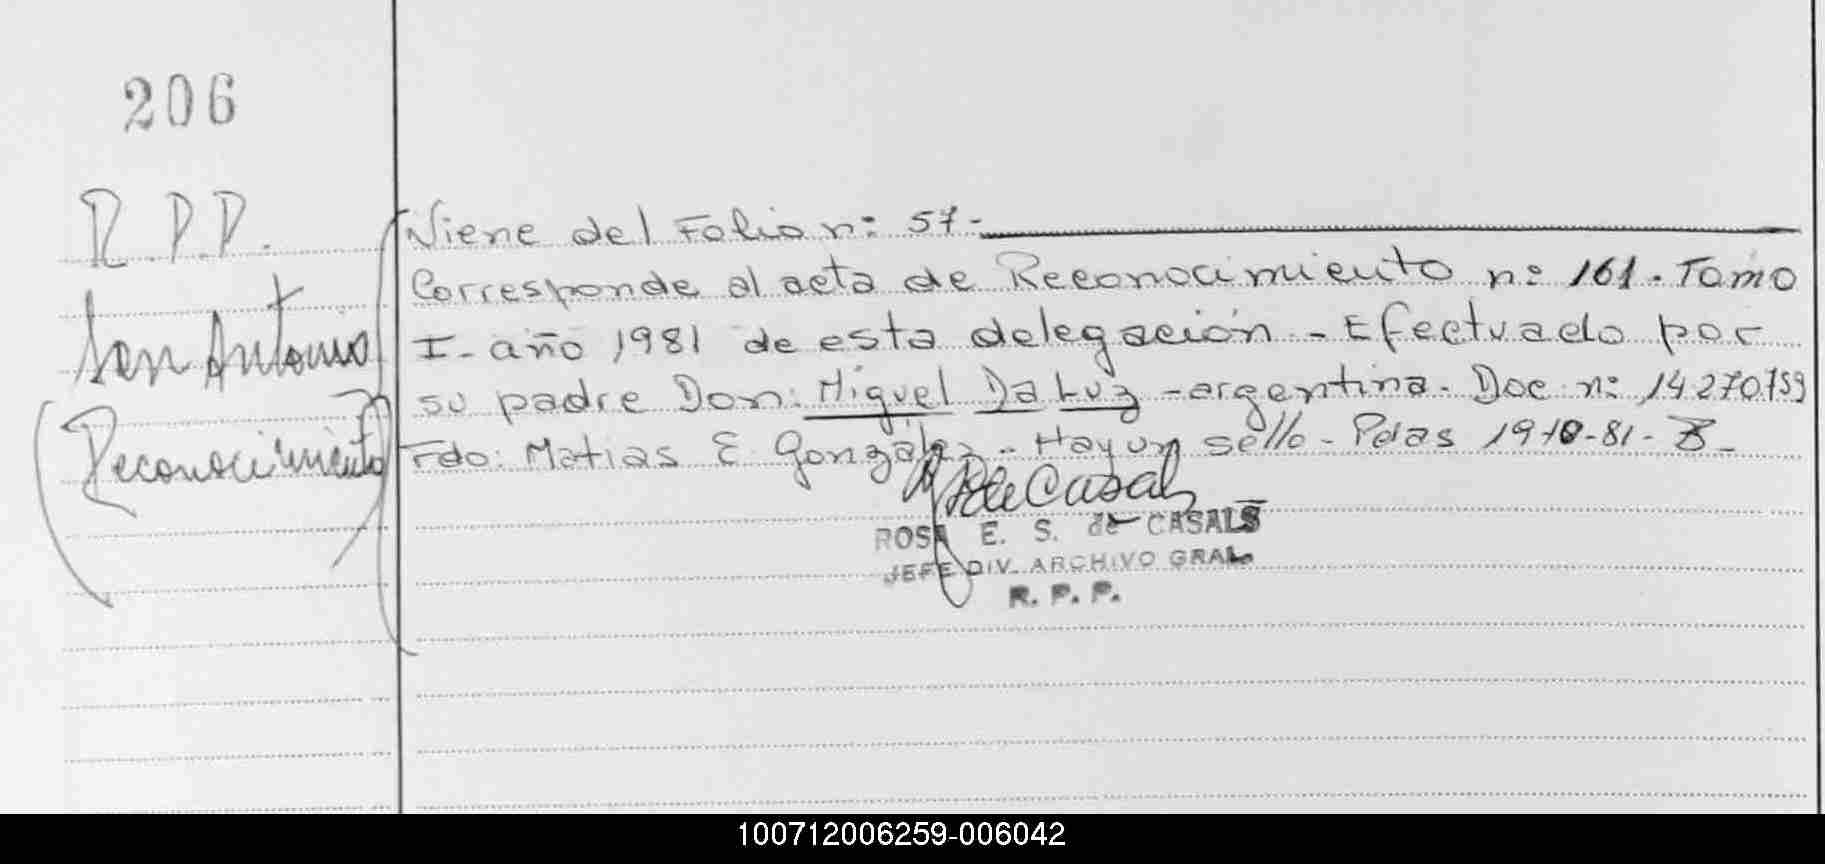 206
R.P.P.
San Antonio
(Reconocimiento)
Viene del Folio nº 57.-
Corresponde al acta de Reconocimiento nº 161. Tomo
I - año 1981 de esta delegación - Efectuado por
su padre Don: Miguel Da Luz - argentina. Doc nº 14270759
Fdo: Matias E. González - Hay un sello - Pdas 19-10-81-
ROSA E. S. de CASALS
JEFE DIV. ARCHIVO GRAL.
R. P. P.
100712006259-006042